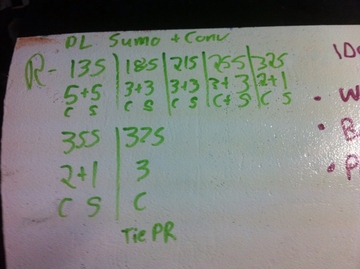 DL Sumo + Conv
R- 135 | 185 | 215 | 255 | 325
5+5 | 3+3 | 3+3 | 3+3 | 2+1
C S | C S | C S | C+S | C S
355 | 325
2+1 | 3
C S | C
Tie PR